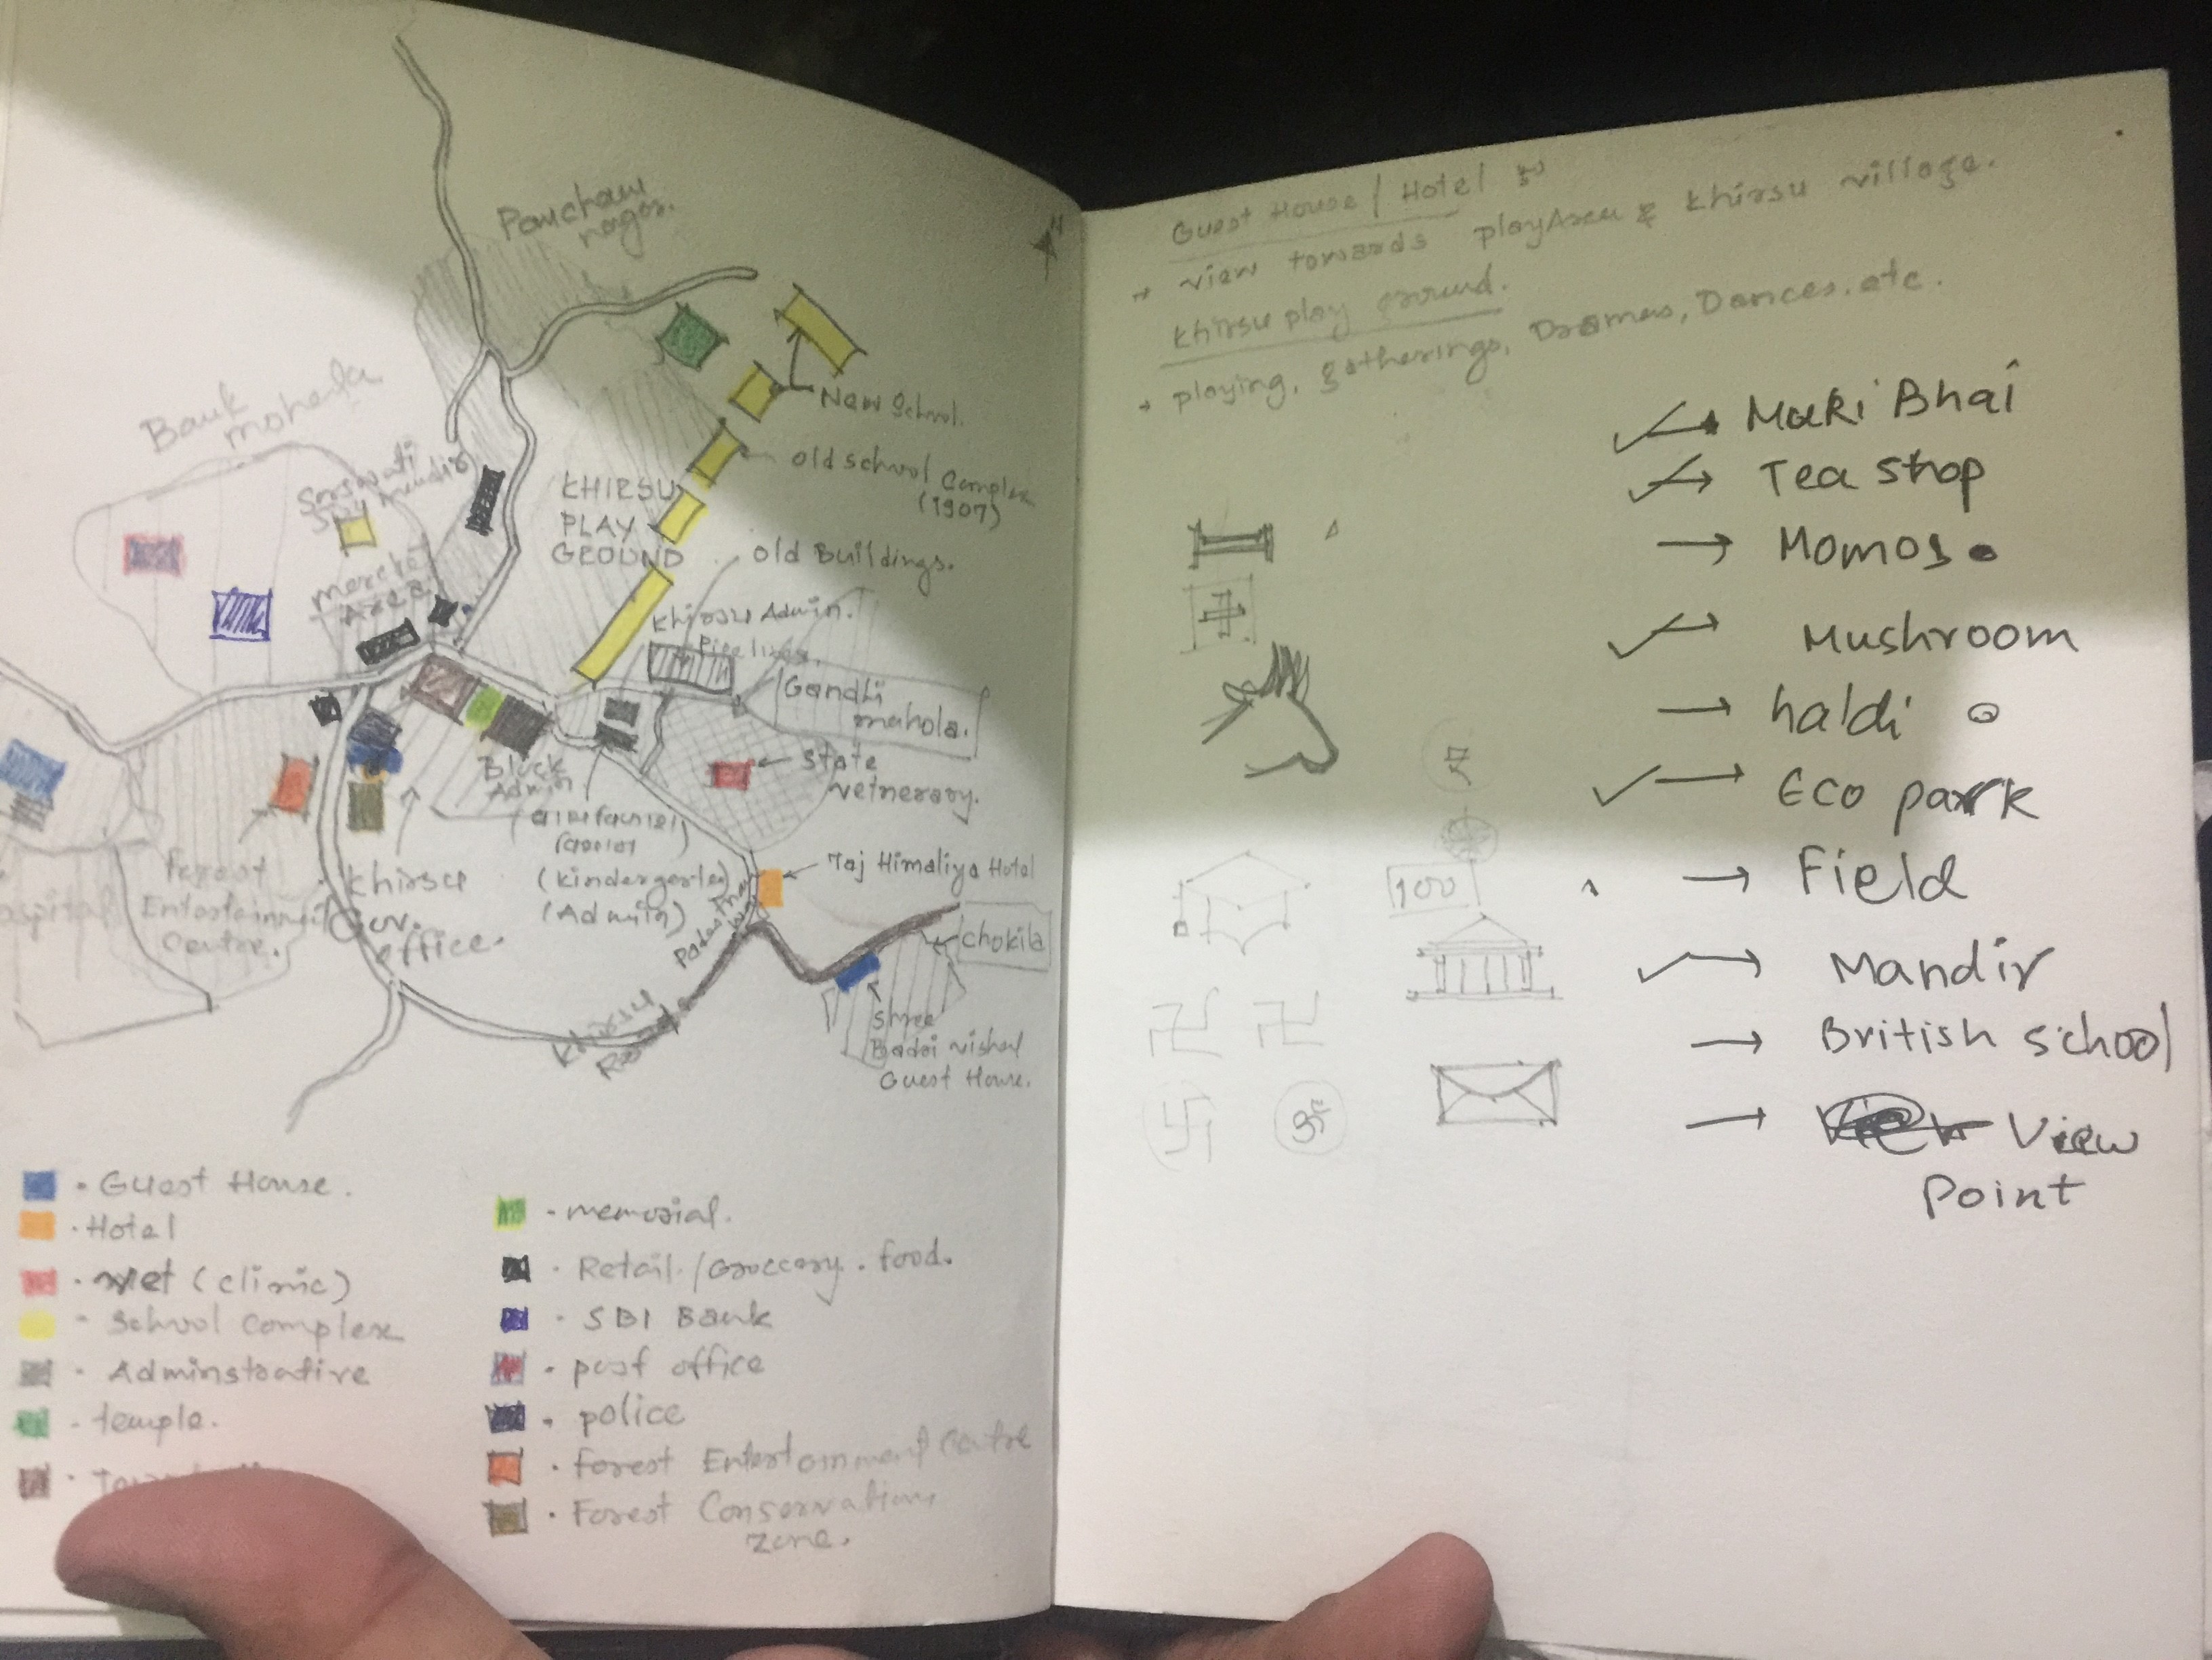 Panchaw
nagar.
N
Bank
mohela
New School.
Sarswati
mandir
old school Complex
(1907)
KHIRSU
PLAY
GROUND
old Buildings.
market
Area
Khirsu Admin.
Pipelines.
Gandhi
mahola.
State
vetnerary.
Block
Admin
(kindergarten)
(Admin)
Taj Himaliya Hotel
Forest
Entertainment
Centre.
khirsu
Gov.
office.
ospital
chokila
Khirsu
Road
Shree
Badri vishal
Guest House.
Guest House.
Hotel
vet (clinic)
School Complex
Adminstrative
temple.
memorial.
Retail/Groccery. food.
SBI Bank
post office
police
Forest Entertainment Centre
Forest Conservation
zone.
Guest House / Hotel
→ view towards playArea & khirsu village.
khirsu play ground.
→ playing, gatherings, Dramas, Dances.etc.
✓→ Maki Bhai
✓→ Tea shop
→ Momos
✓→ Mushroom
→ haldi
✓→ Eco park
→ Field
✓→ Mandir
→ British school
→ View
Point
100
ॐ